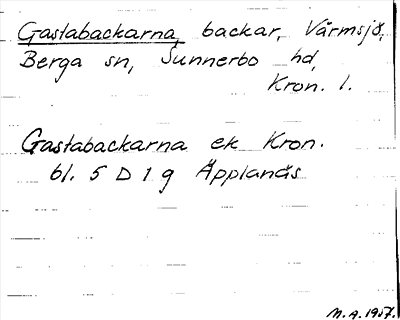 Gastabackarna, backar, Värmsjö,
Berga sn, Sunnerbo hd,
Kron. l.
Gastabackarna ek Kron.
bl. 5 D 1 g Äpplanäs
M.A. 1957.